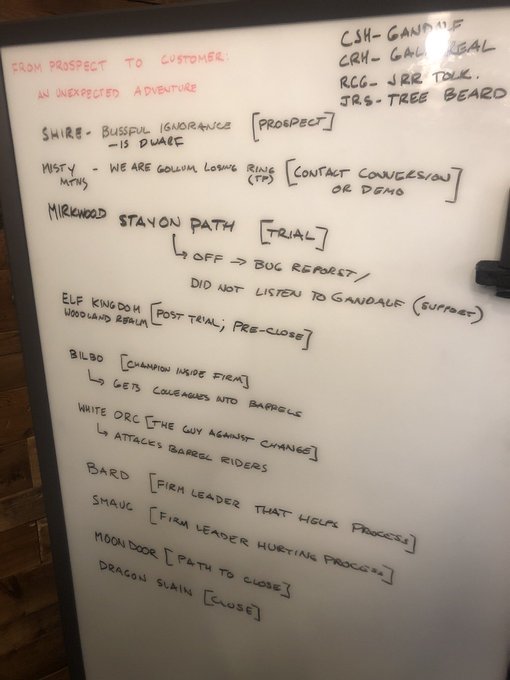 FROM PROSPECT TO CUSTOMER:
AN UNEXPECTED ADVENTURE
CSH- GANDALF
CRH- GALADREAL
RCG- JRR TOLK.
JRS- TREE BEARD
SHIRE- BLISSFUL IGNORANCE [PROSPECT]
-IS DWARF
MISTY MTNS - WE ARE GOLLUM LOSING RING (TP) [CONTACT CONVERSION OR DEMO]
MIRKWOOD STAY ON PATH [TRIAL]
↳ OFF → BUG REPORST/
DID NOT LISTEN TO GANDALF (SUPPORT)
ELF KINGDOM
WOODLAND REALM [POST TRIAL; PRE-CLOSE]
BILBO [CHAMPION INSIDE FIRM]
↳ GETS COLLEAGUES INTO BARRELS
WHITE ORC [THE GUY AGAINST CHANGE]
↳ ATTACKS BARREL RIDERS
BARD [FIRM LEADER THAT HELPS PROCESS]
SMAUG [FIRM LEADER HURTING PROCESS]
MOON DOOR [PATH TO CLOSE]
DRAGON SLAIN [CLOSE]